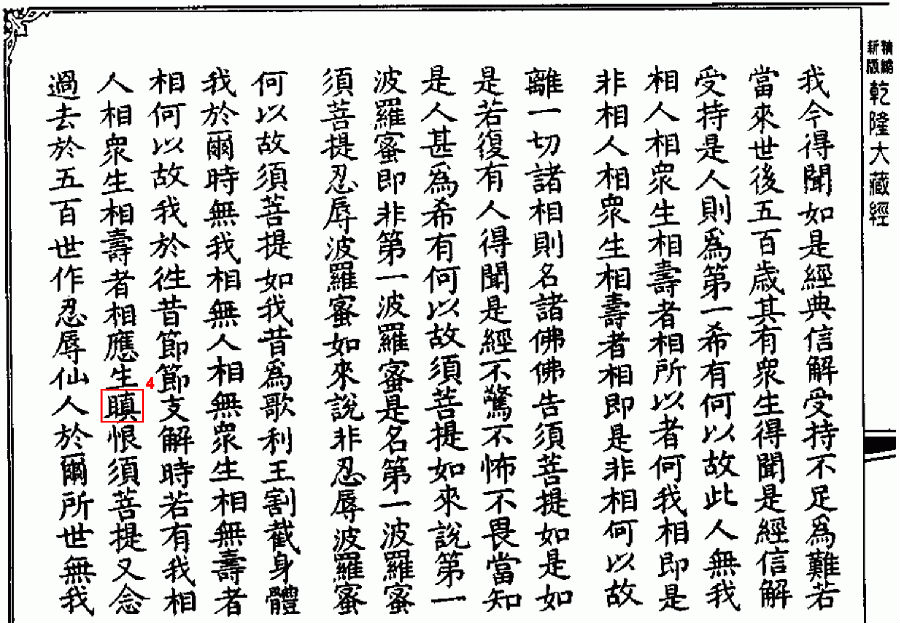 新版
乾隆大藏經
我今得聞如是經典信解受持不足為難若
當來世後五百歲其有衆生得聞是經信解
受持是人則為第一希有何以故此人無我
相人相衆生相壽者相所以者何我相即是
非相人相衆生相壽者相即是非相何以故
離一切諸相則名諸佛佛告須菩提如是如
是若復有人得聞是經不驚不怖不畏當知
是人甚為希有何以故須菩提如來說第一
波羅蜜即非第一波羅蜜是名第一波羅蜜
須菩提忍辱波羅蜜如來說非忍辱波羅蜜
何以故須菩提如我昔為歌利王割截身體
我於爾時無我相無人相無衆生相無壽者
相何以故我於徃昔節節支解時若有我相
人相衆生相壽者相應生瞋恨須菩提又念
4
過去於五百世作忍辱仙人於爾所世無我